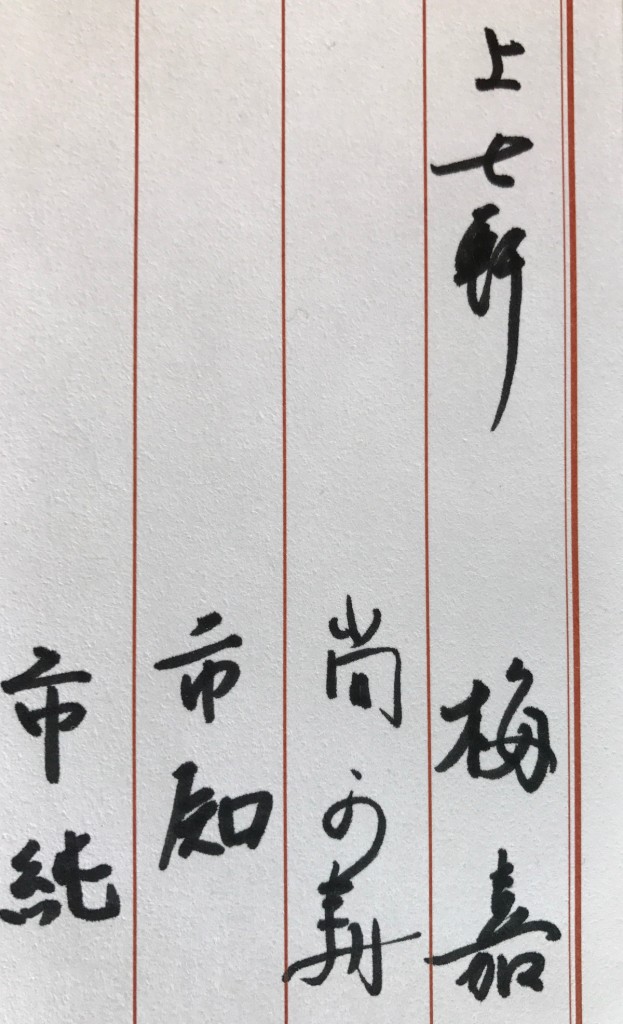 上七軒　梅嘉
尚可寿
市知
市純